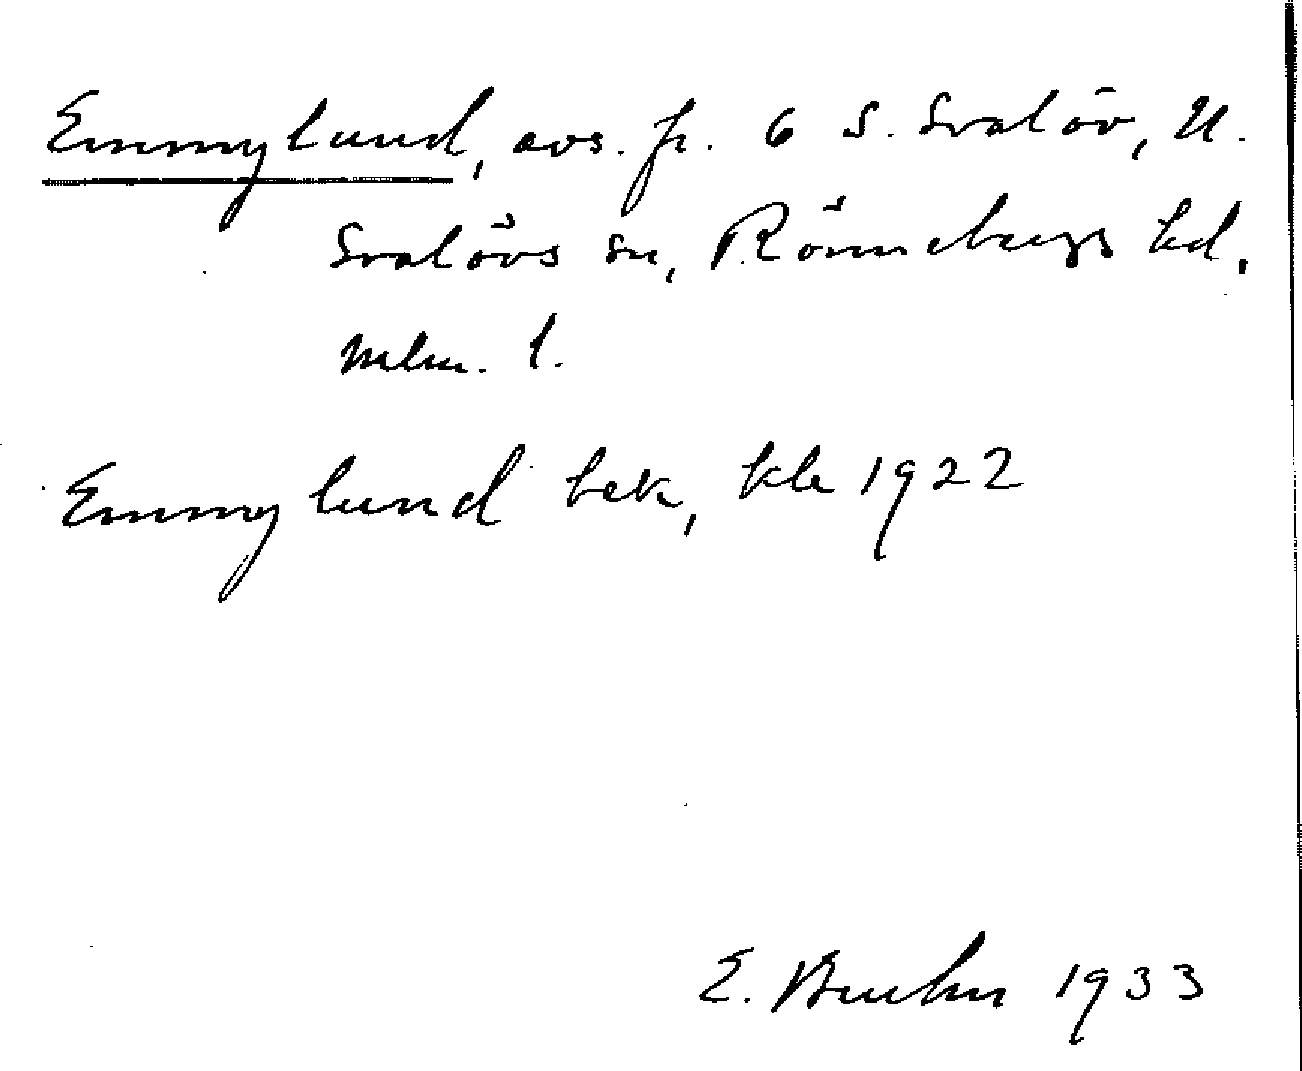 Emmylund, avs. fr. 6 S. Svalöv, N.
Svalövs sn, Rönnebergs hd,
Mlm. l.
Emmylund bek, kla 1922
E. Bruhn 1933